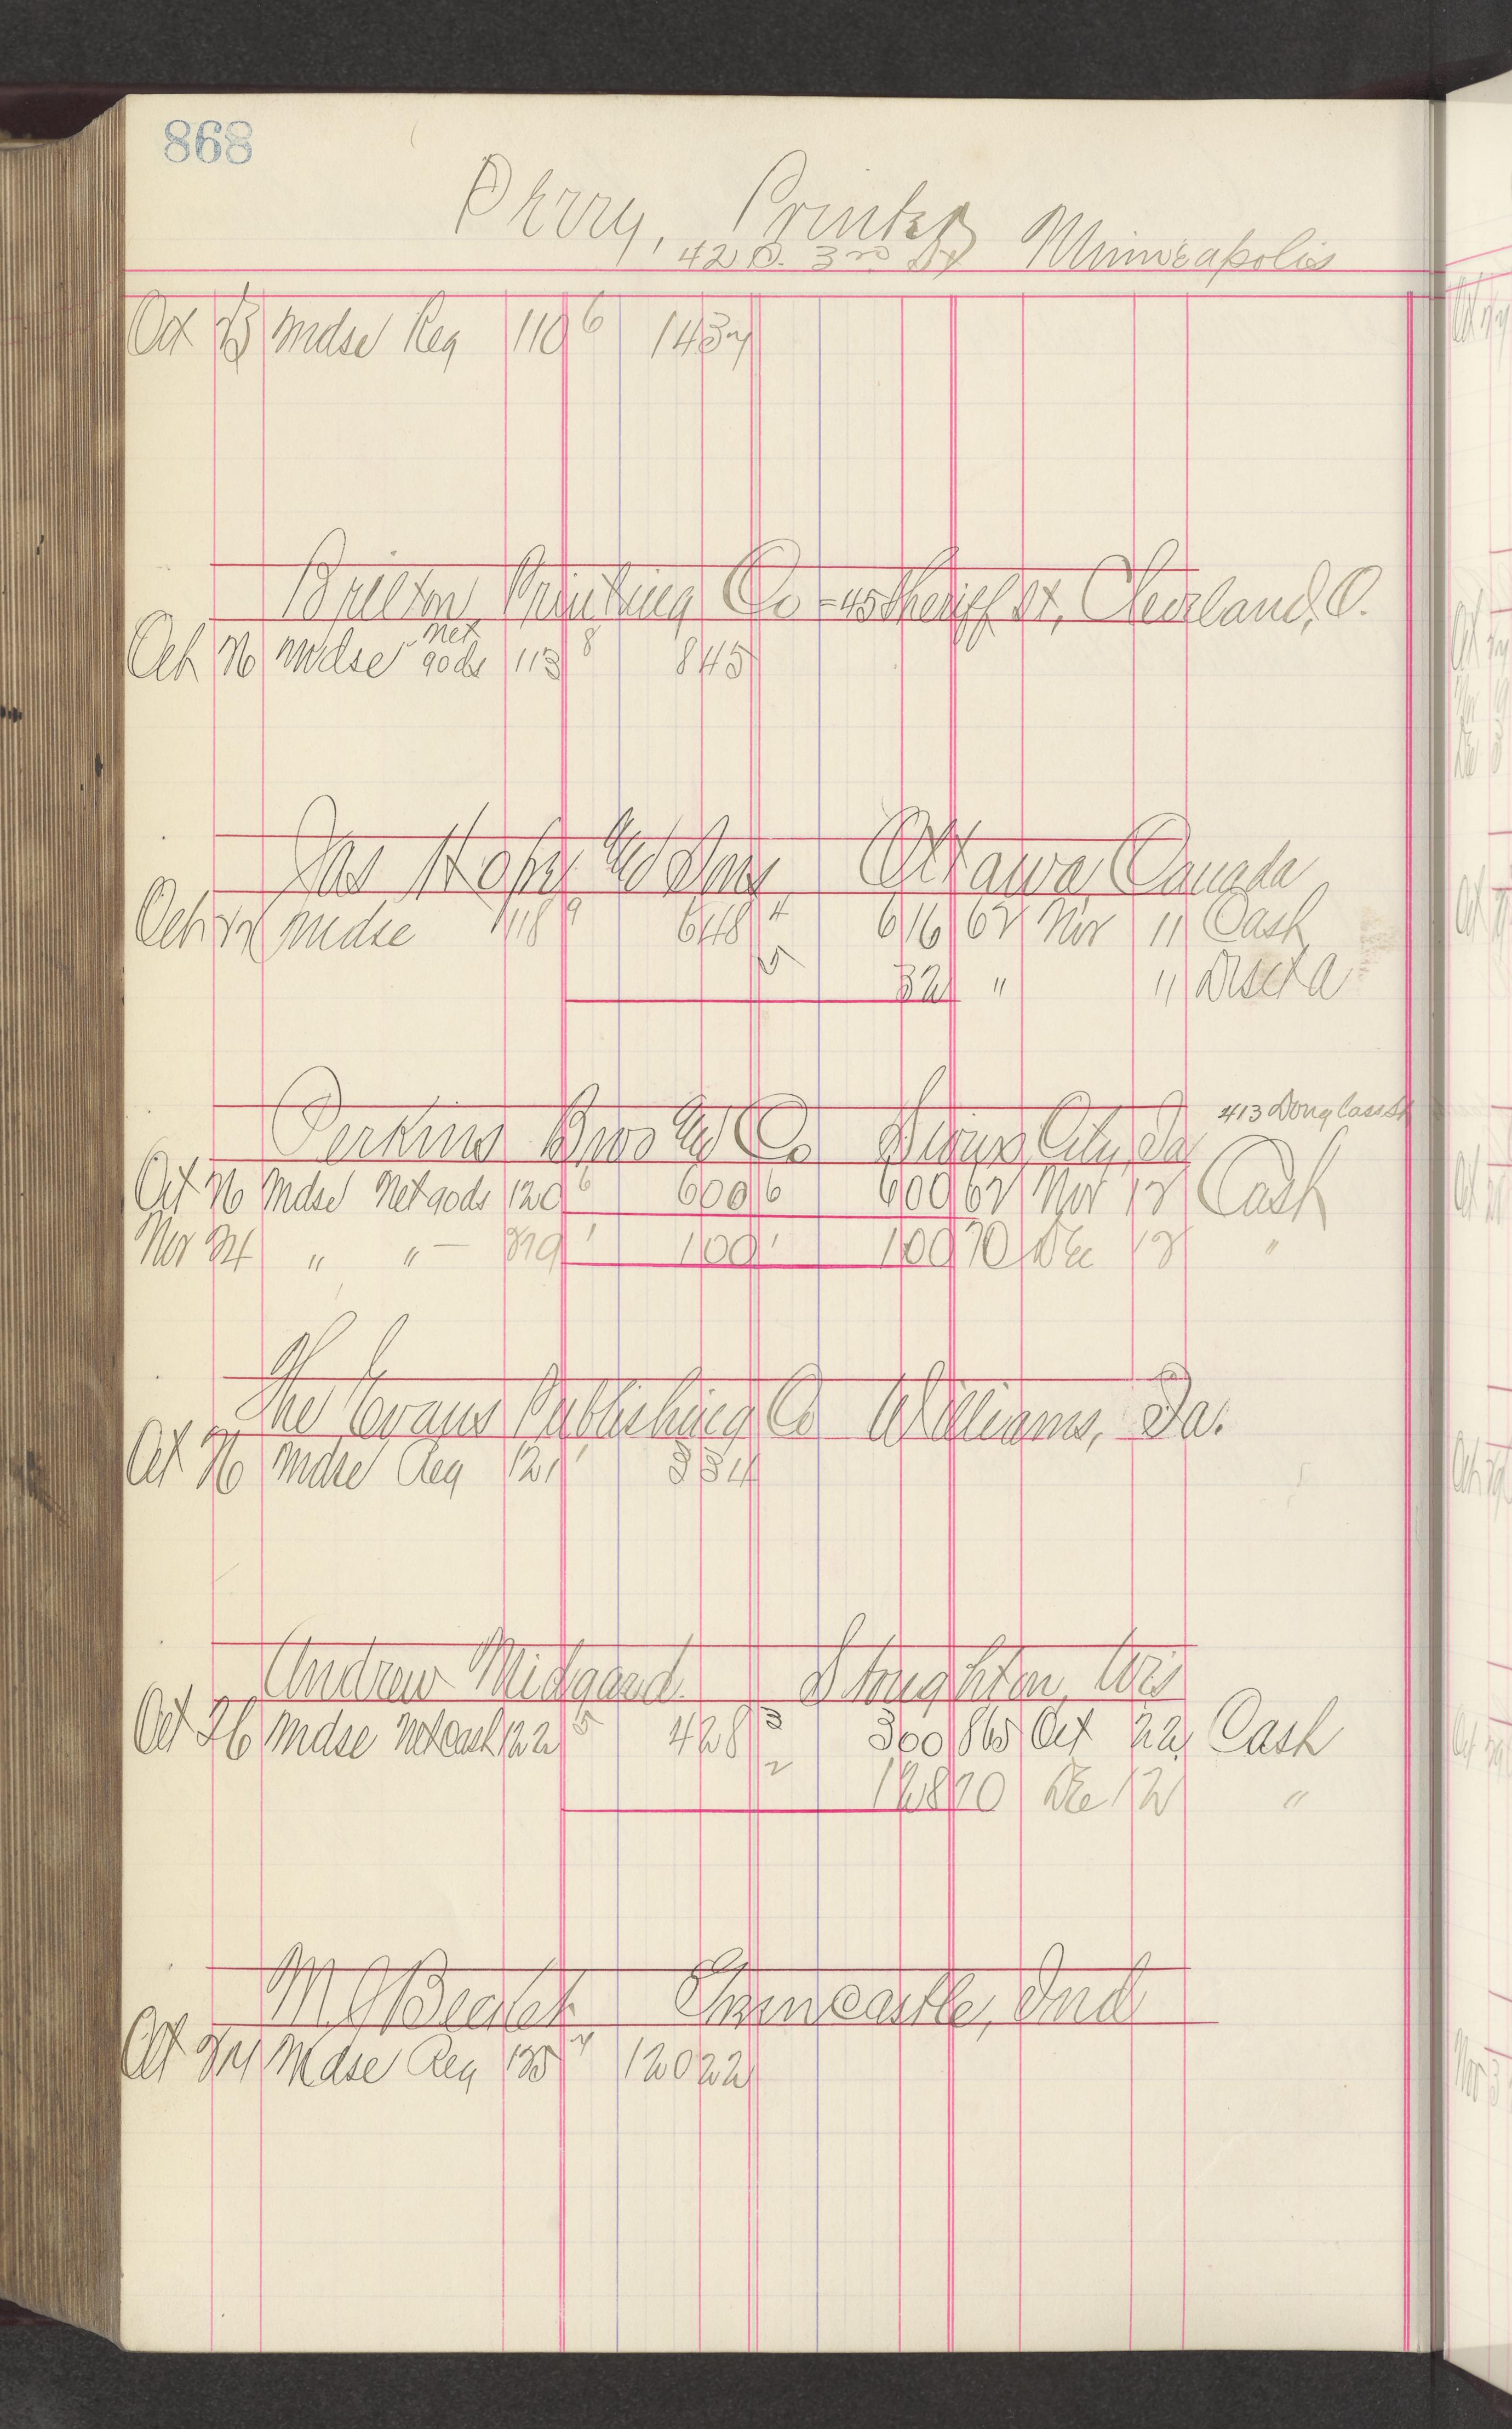 868
Perry, Printer Minneapolis
420. 3rd St
Oct 23 Mdse Reg 110 6 1437
Britton Printing Co - 45 Sheriff St, Cleveland, O.
Oct 26 Mdse Net 90 ds 113 8 845
Jas Hope & Sons Ottawa Canada
Oct Mdse 118 9 648 4 616 62 Nov 11 Cash
5 32 " 11 Disct a
Perkins Bros & Co Sioux City, Ia 413 Douglass St
Oct 26 Mdse Net 90 ds 120 6 600 6 600 62 Nov 12 Cash
Nov 24 " " — 1 100 1 100 70 Dec 12 "
The Evans Publishing Co Williams, Ia.
Oct 26 Mdse Reg 121 1 334
Andrew Midgard Stoughton, Wis
Oct 26 Mdse Net Cash 122 5 428 3 300 865 Oct 22 Cash
2 128 70 Dec 12 "
M J Beckett Greencastle, Ind
Oct Mdse Reg 125 7 12022